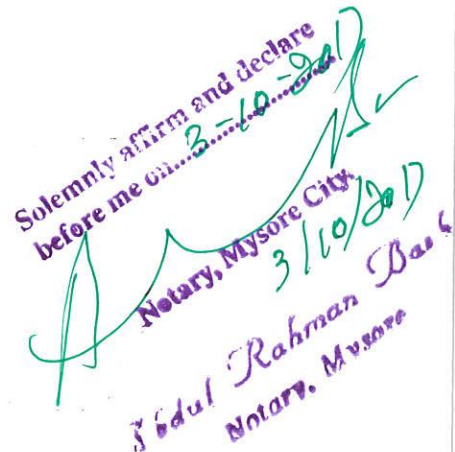 Solemnly affirm and declare
before me on 3-10-2017
Notary, Mysore City.
3/10/2017
Abdul Rahman
Notary, Mysore